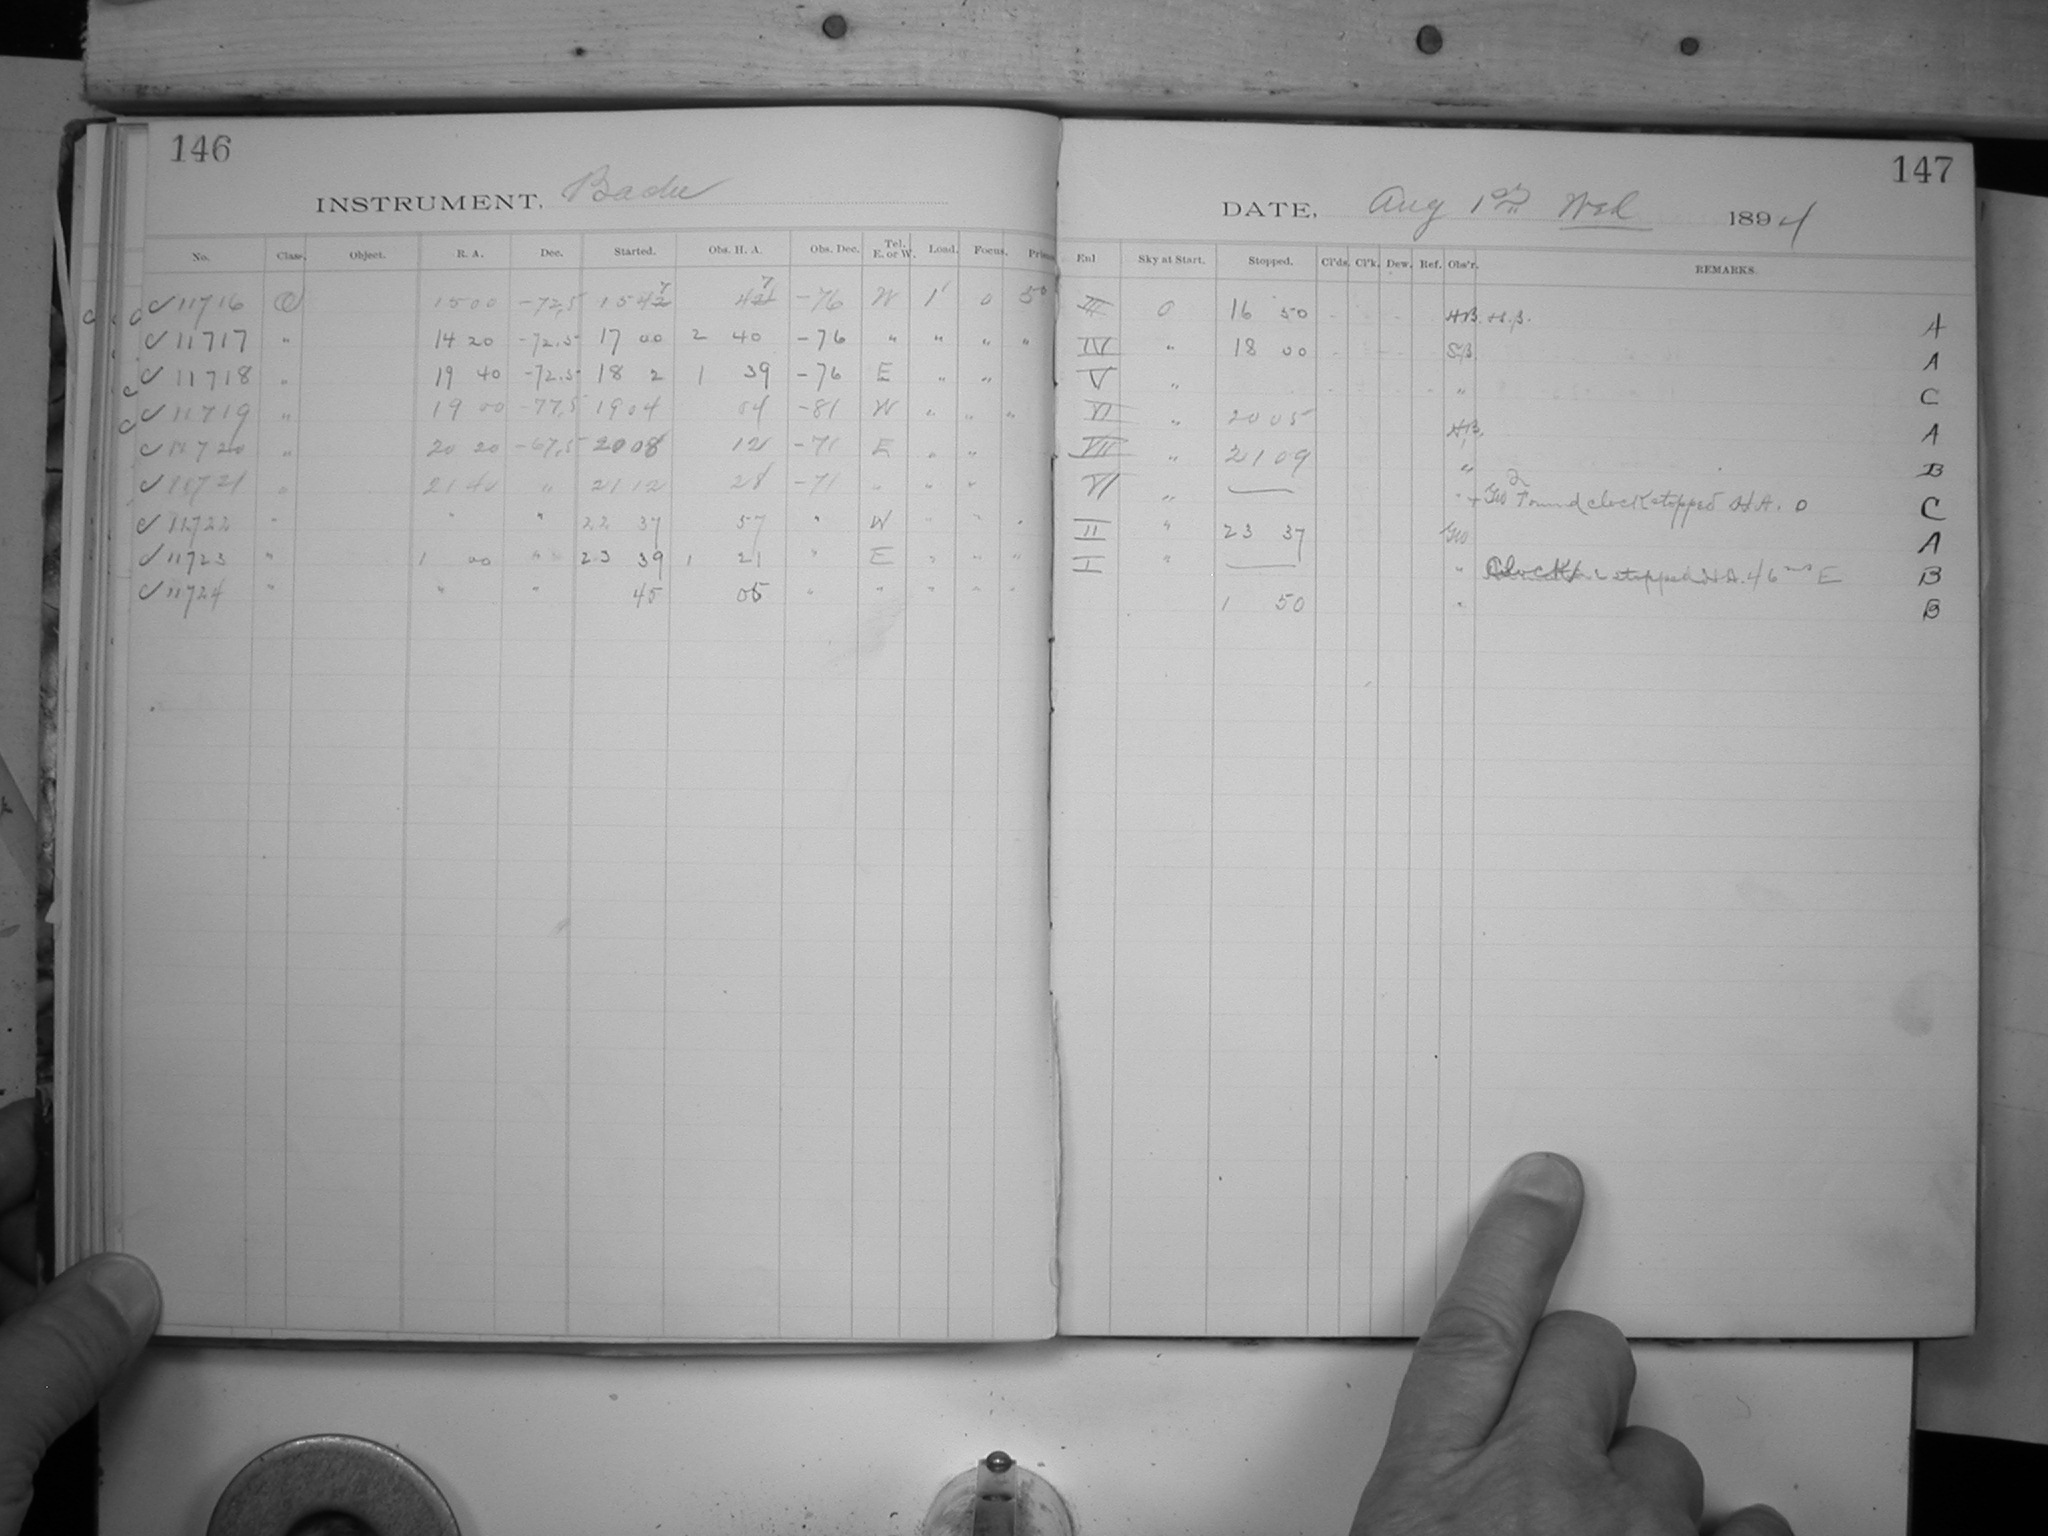 146
INSTRUMENT. Bache
No. Class. Object. R. A. Dec. Started. Obs. H. A. Obs. Dec. Tel. E. or W. Load. Focus.
11716 1500 -72,5 1547 47 -76 W 1 0 50
11717 " 14 20 -72.5 17 00 2 40 -76 " " " "
11718 " 19 40 -72.5 18 2 1 39 -76 E " "
11719 " 19 00 -77,5 1904 04 -81 W " " "
11720 " 20 20 -67,5 2008 12 -71 E " "
11721 " 21 40 " 2112 28 -71 " " "
11722 " " " 22 37 57 " W " " "
11723 " 1 00 " 23 39 1 21 " E " " "
11724 " " " 45 05 " " " " "
147
DATE, Aug 1st Wed 1894
Enl Sky at Start. Stopped. Cl'ds. Cl'k. Dew. Ref. Obs'r. REMARKS.
III 0 16 50 H.B. A
IV " 18 00 S.B. A
V " " C
VI " 2005 H.B. A
VII " 2109 " B
VI " Found clock stopped H.A. 0 C
II " 23 37 A
I " " stopped H.A. 46 E B
1 50 " B